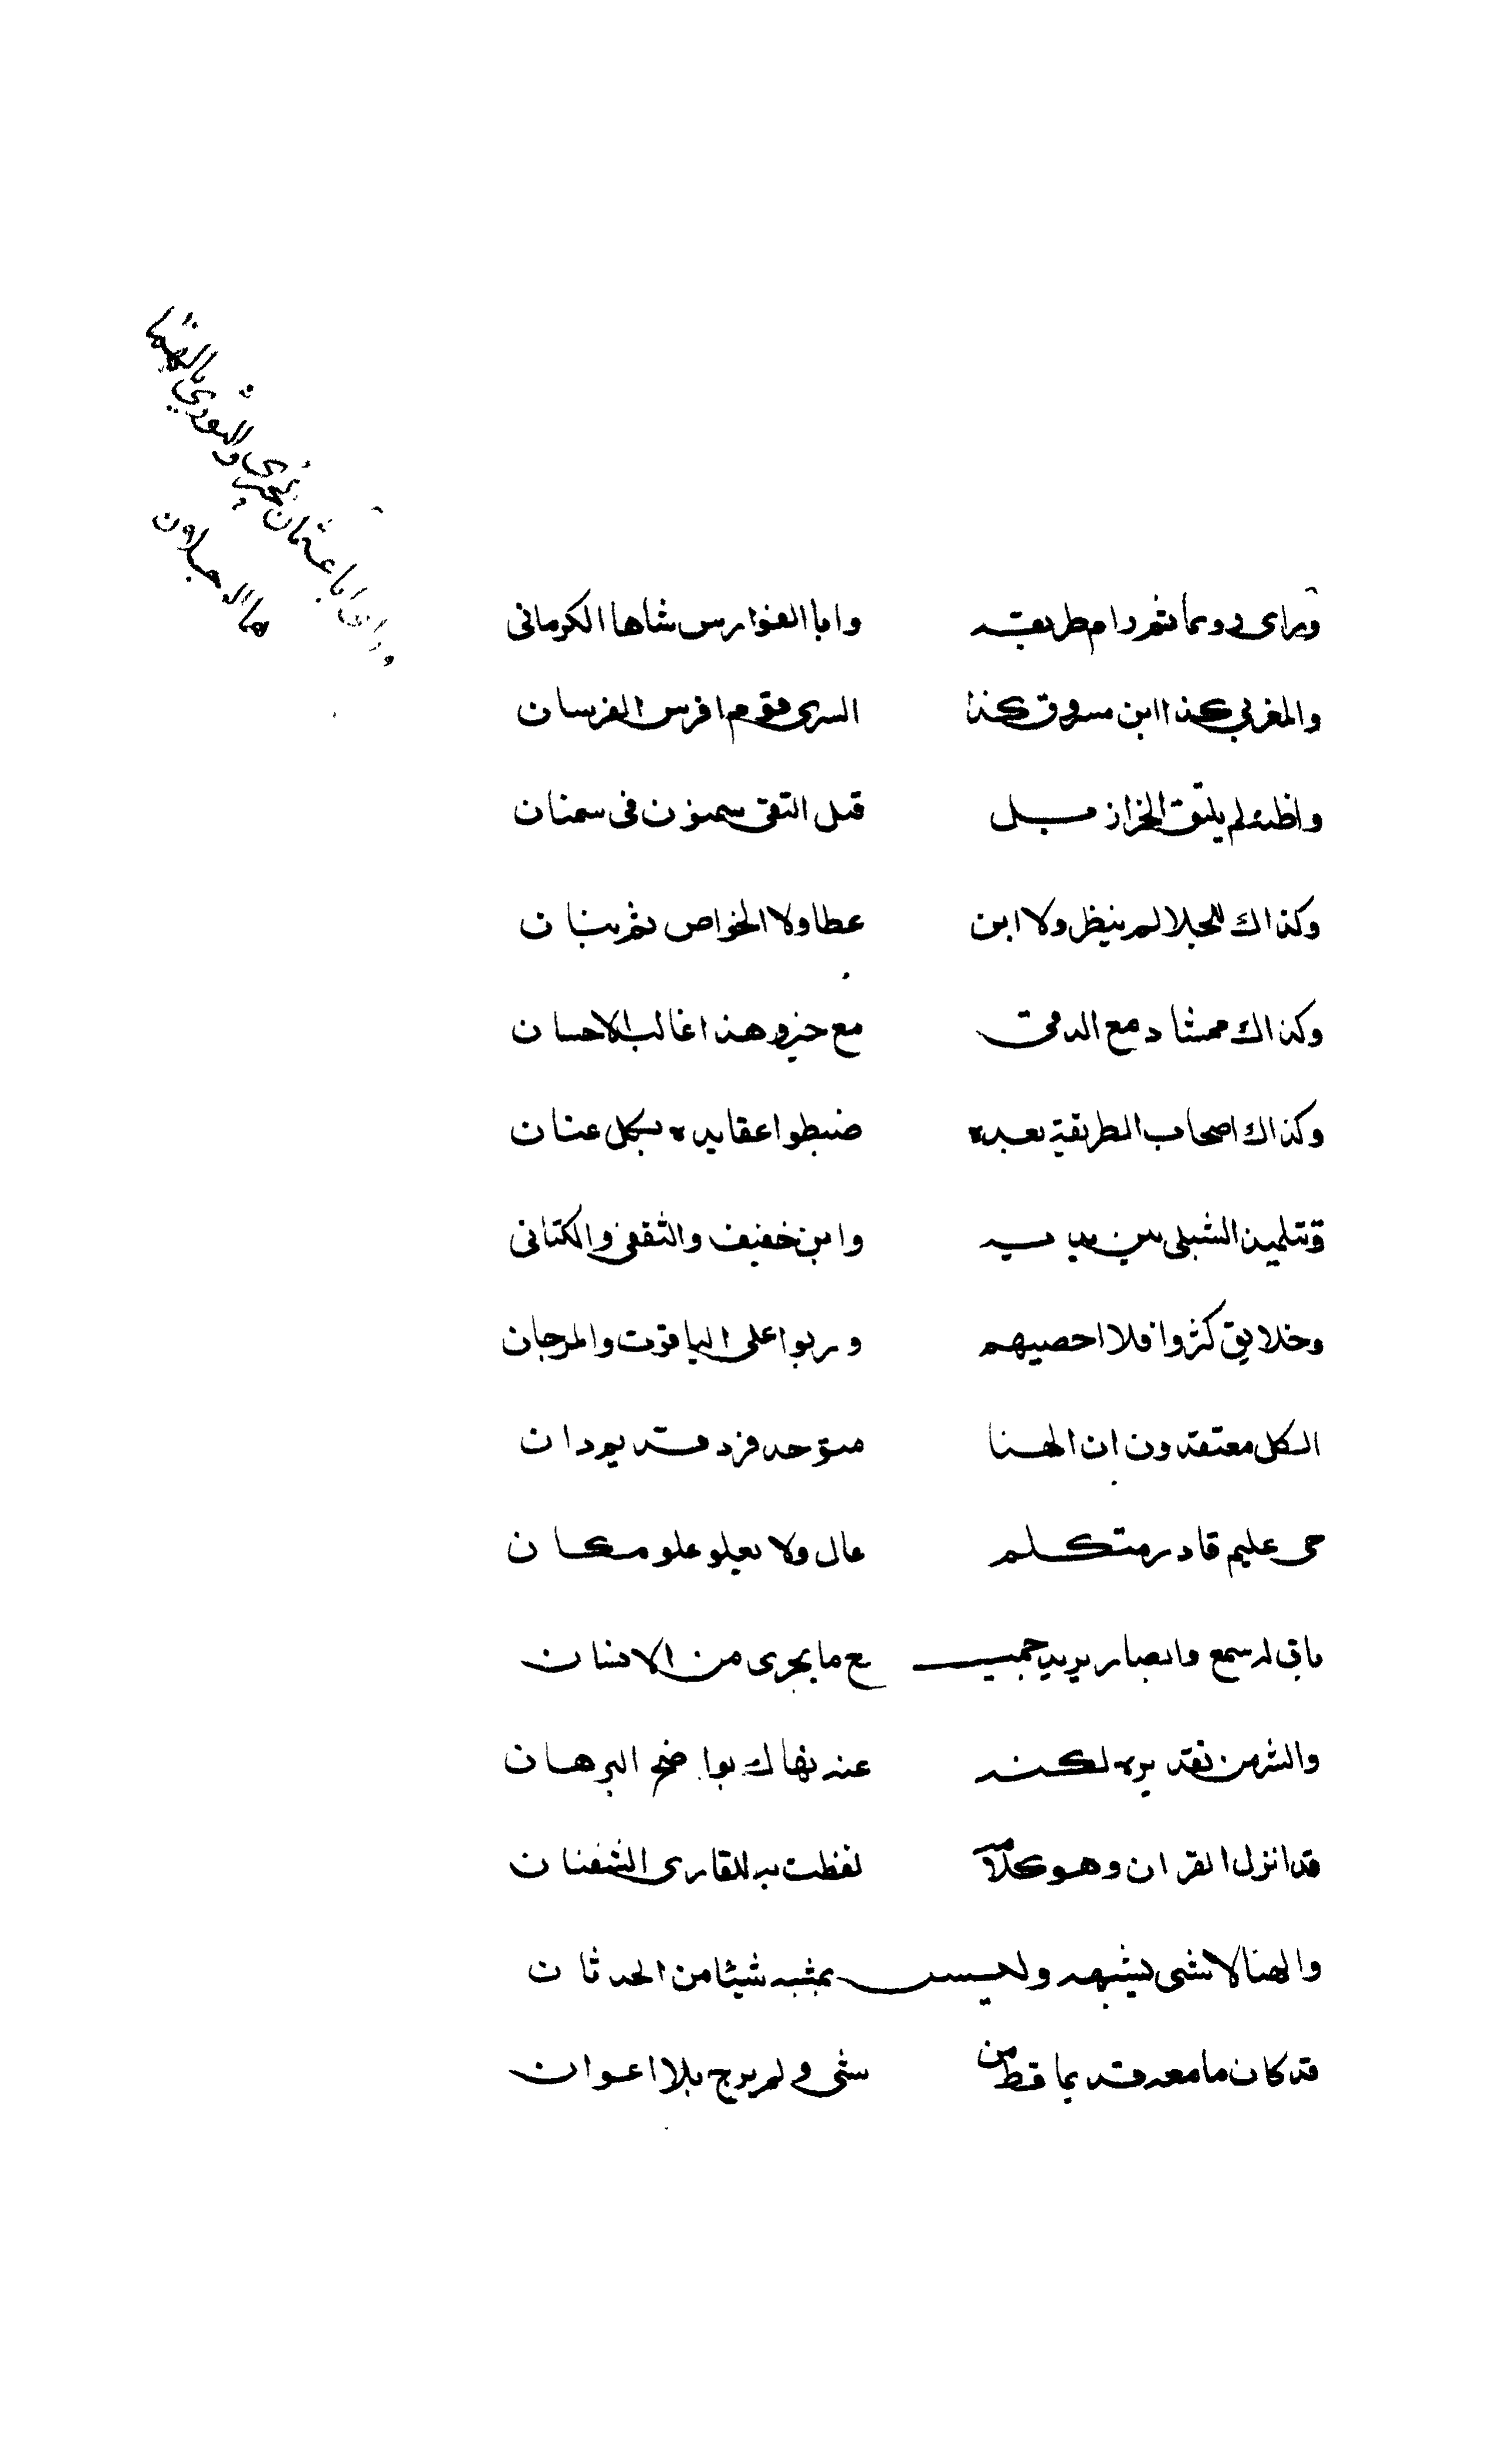 وراى رويما ثم رام طريقه وابا الفوارس شاها الكرمانى
والمغربى كذا ابن مسروق كذا السرى قوم افرس الفرسان
واظنه لم يلتق الخراز بل قبل التقى سمنون فى سمنان
وكذاك للجلا لم ينظر ولا ابن عطا ولا الخواص ثم بنان
وكذاك ممشاد مع الدقى مع خير وهذا غالب الاحسان
وكذاك اصحاب الطريقة بعده ضبطوا عقايده بكل عنان
وتتلميذ الشبلى بين يديه وابن خفيف والثقفى والكتانى
وخلايق كثروا فلا احصيهم وربوا على الياقوت والمرجان
الكل معتقدون ان الهنا متوحد فرد قديم دان
حى عليم قادر متكلم عال ولا يعلو علو مكان
باق له سمع وابصار يريد جميع ما يجرى من الانسان
والشر من تقديره لكنه عنه نهاك بواضح البرهان
قد انزل القران وهو كلامه لفظت به للقارى الشفتان
والهنا لا شى يشبهه وليس بمشبه شيئا من الحدثان
قد كان ما معه قديما قط من شى ولم يرج بلا اعوان
وابى ابا عثمان الحيرى والنورى
هما